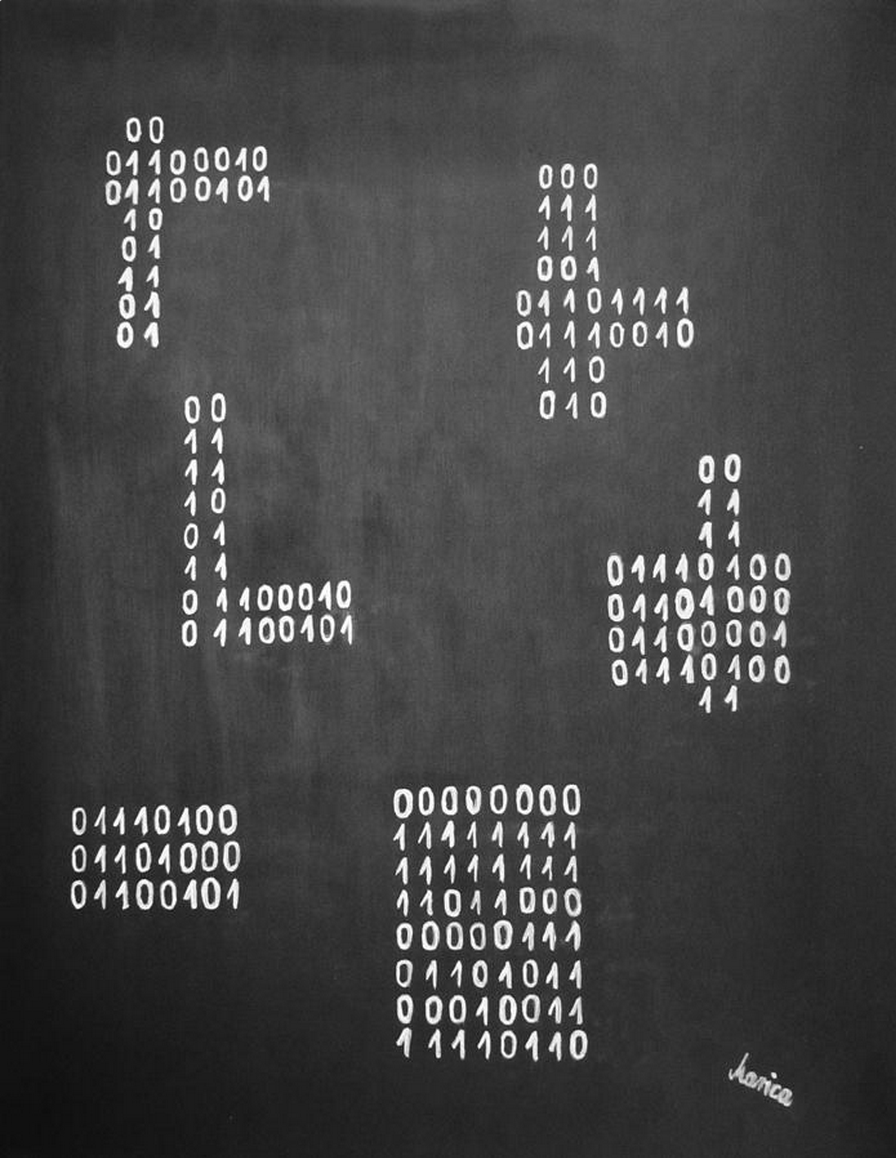 00
01100010
01100101
10
01
11
01
01
000
111
111
001
01101111
01110010
110
010
00
11
11
10
01
11
01100010
01100101
00
11
11
01110100
01101000
01100001
01110100
11
01110100
01101000
01100101
00000000
11111111
11111111
11011000
00000111
01101011
00010011
11110110
Marica